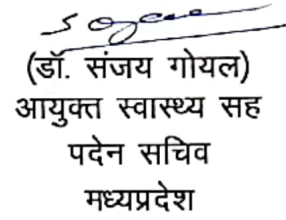 (डॉ. संजय गोयल)
आयुक्त स्वास्थ्य सह
पदेन सचिव
मध्यप्रदेश